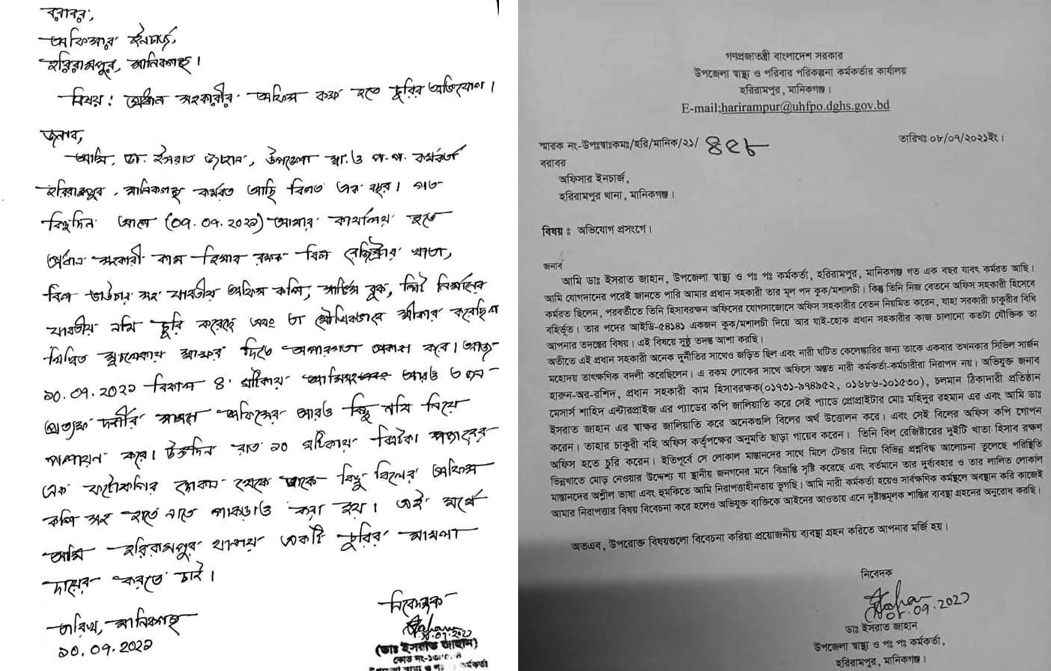 বরাবর,
অফিসার ইনচার্জ,
হরিরামপুর, মানিকগঞ্জ।
বিষয়: প্রধান সহকারীর অফিস কক্ষ হতে চুরির অভিযোগ।
জনাব,
আমি, ডা. ইসরাত জাহান, উপজেলা স্বা. ও প. প. কর্মকর্তা
হরিরামপুর, মানিকগঞ্জ কর্মরত আছি বিগত এক বছর। গত
কিছুদিন আগে (০৭.০৭.২০২১) আমার কার্যালয় হতে
প্রধান সহকারী কাম হিসাব রক্ষক বিল রেজিস্টার খাতা,
বিল ভাউচার সহ যাবতীয় অফিস কপি, সার্ভিস বুক,
যাবতীয় নথি চুরি করেছে এবং তা মৌখিকভাবে স্বীকার করেছিল
লিখিত স্বাক্ষর দিতে অপারগতা প্রকাশ করে। আজ
১০.০৭.২০২১ বিকাল ৪ ঘটিকায় আরও ৩ জন
প্রত্যক্ষ দর্শীর সামনে অফিসের আরও কিছু নথি নিয়ে
পলায়ন করে। উক্তদিন রাত ১০ ঘটিকায় ঝিটকা
এক ফটোকপির দোকান থেকে তাকে কিছু বিলের অফিস
কপি সহ হাতে নাতে পাকড়াও করা হয়। এই মর্মে
আমি হরিরামপুর থানায় একটি চুরির মামলা
দায়ের করতে চাই।
তারিখ, মানিকগঞ্জ
১০.০৭.২০২১
নিবেদক
১০.০৭.২০২১
(ডাঃ ইসরাত জাহান)
গণপ্রজাতন্ত্রী বাংলাদেশ সরকার
উপজেলা স্বাস্থ্য ও পরিবার পরিকল্পনা কর্মকর্তার কার্যালয়
হরিরামপুর, মানিকগঞ্জ।
E-mail;harirampur@uhfpo.dghs.gov.bd
স্মারক নং-উপঃস্বাঃকমঃ/হরি/মানিক/২১/ ৪৫৮
তারিখঃ ০৮/০৭/২০২১ইং।
বরাবর
অফিসার ইনচার্জ,
হরিরামপুর থানা, মানিকগঞ্জ।
বিষয় ঃ অভিযোগ প্রসংগে।
জনাব
আমি ডাঃ ইসরাত জাহান, উপজেলা স্বাস্থ্য ও পঃ পঃ কর্মকর্তা, হরিরামপুর, মানিকগঞ্জ গত এক বছর যাবৎ কর্মরত আছি।
আমি যোগদানের পরেই জানতে পারি আমার প্রধান সহকারী তার মূল পদ কুক/মশালচী। কিন্তু তিনি নিজ বেতনে অফিস সহকারী হিসেবে
কর্মরত ছিলেন, পরবর্তীতে তিনি হিসাবরক্ষন অফিসের যোগসাজোসে অফিস সহকারীর বেতন নিয়মিত করেন, যাহা সরকারী চাকুরীর বিধি
বহির্ভূত। তার পদের আইডি-৫৪১৪১ একজন কুক/মশালচী দিয়ে আর যাই-হোক প্রধান সহকারীর কাজ চালানো কতটা যৌক্তিক তা
আপনার তদন্তের বিষয়। এই বিষয়ে সুষ্ঠু তদন্ত আশা করছি।
অতীতে এই প্রধান সহকারী অনেক দুর্নীতির সাথেও জড়িত ছিল এবং নারী ঘটিত কেলেঙ্কারির জন্য তাকে একবার তখনকার সিভিল সার্জন
মহোদয় তাৎক্ষণিক বদলী করেছিলেন। এ রকম লোকের সাথে অফিসে অন্তত নারী কর্মকর্তা-কর্মচারীরা নিরাপদ নয়। অভিযুক্ত জনাব
হারুন-অর-রশিদ, প্রধান সহকারী কাম হিসাবরক্ষক(০১৭৩১-৯৭৪৯৫২, ০১৬৮৬-১০১৫৩০), চলমান ঠিকাদারী প্রতিষ্ঠান
মেসার্স শাহিদ এন্টারপ্রাইজ এর প্যাডের কপি জালিয়াতি করে সেই প্যাডে প্রোপ্রাইটার মোঃ মহিদুর রহমান এর এবং আমি ডাঃ
ইসরাত জাহান এর স্বাক্ষর জালিয়াতি করে অনেকগুলি বিলের অর্থ উত্তোলন করে। এবং সেই বিলের অফিস কপি গোপন
করেন। তাহার চাকুরী বহি অফিস কর্তৃপক্ষের অনুমতি ছাড়া গায়েব করেন। তিনি বিল রেজিষ্টারের দুইটি খাতা হিসাব রক্ষণ
অফিস হতে চুরি করেন। ইতিপূর্বে সে লোকাল মাস্তানদের সাথে মিলে টেন্ডার নিয়ে বিভিন্ন প্রশ্নবিদ্ধ আলোচনা তুলেছে পরিস্থিতি
ভিন্নখাতে মোড় নেওয়ার উদ্দেশ্য যা স্থানীয় জনগনের মনে বিভ্রান্তি সৃষ্টি করেছে এবং বর্তমানে তার দুর্ব্যবহার ও তার লালিত লোকাল
মাস্তানদের অশ্লীল ভাষা এবং হুমকিতে আমি নিরাপত্তাহীনতায় ভুগছি। আমি নারী কর্মকর্তা হয়েও সার্বক্ষণিক কর্মস্থলে অবস্থান করি কাজেই
আমার নিরাপত্তার বিষয় বিবেচনা করে হলেও অভিযুক্ত ব্যক্তিকে আইনের আওতায় এনে দৃষ্টান্তমূলক শাস্তির ব্যবস্থা গ্রহনের অনুরোধ করছি।
অতএব, উপরোক্ত বিষয়গুলো বিবেচনা করিয়া প্রয়োজনীয় ব্যবস্থা গ্রহন করিতে আপনার মর্জি হয়।
নিবেদক
০৮.০৭.২০২১
ডাঃ ইসরাত জাহান
উপজেলা স্বাস্থ্য ও পঃ পঃ কর্মকর্তা,
হরিরামপুর, মানিকগঞ্জ।